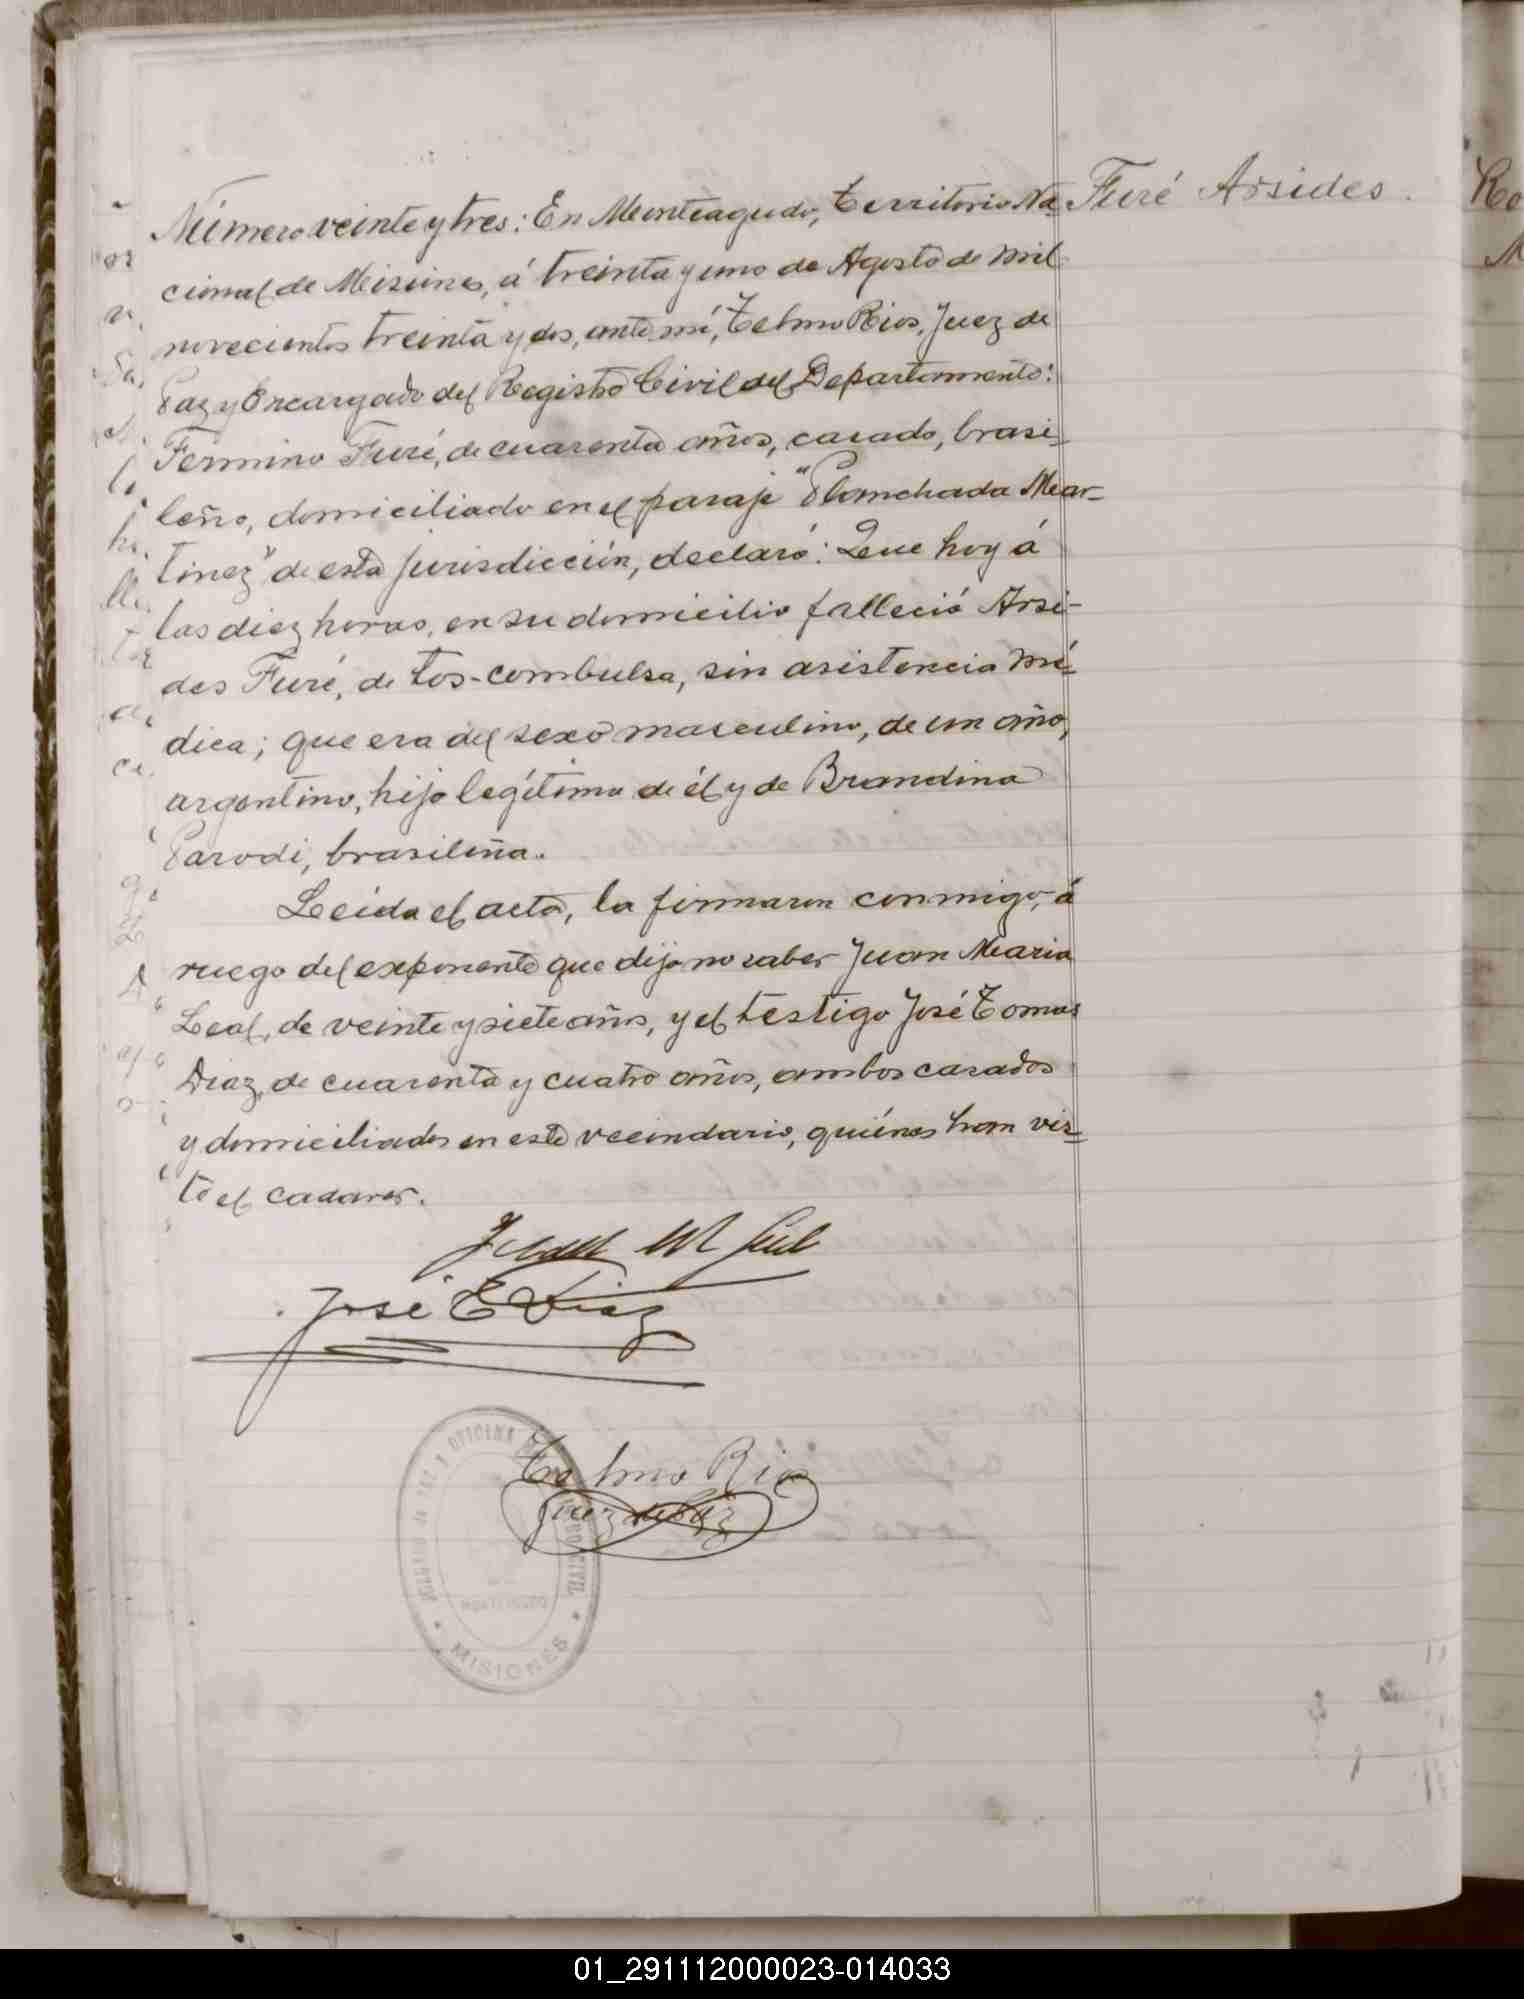 Furé Arsides.
Número veinte y tres: En Monteagudo, Territorio Na-
cional de Misiones, á treinta y uno de Agosto de mil
novecientos treinta y dos, ante mí, Telmo Rios, Juez de
Paz y Encargado del Registro Civil del Departamento:
Fermino Furé, de cuarenta años, casado, brasi-
leño, domiciliado en el paraje "Planchada Mar-
tinez" de esta jurisdicción, declaró: Que hoy á
las diez horas, en su domicilio falleció Arsi-
des Furé, de tos-combulsa, sin asistencia mé-
dica; que era del sexo masculino, de un año,
argentino, hijo legítimo de él y de Brandina
Parodi, brasileña.
Leída el acta, la firmaron conmigo, á
ruego del exponente que dijo no saber Juan Maria
Leal, de veinte y siete años, y el testigo José Tomas
Diaz, de cuarenta y cuatro años, ambos casados
y domiciliados en este vecindario, quiénes han vis-
to el cadaver.
José T Diaz
Telmo Rios
Juez de Paz
OFICINA
CIVIL
MISIONES
01_291112000023-014033